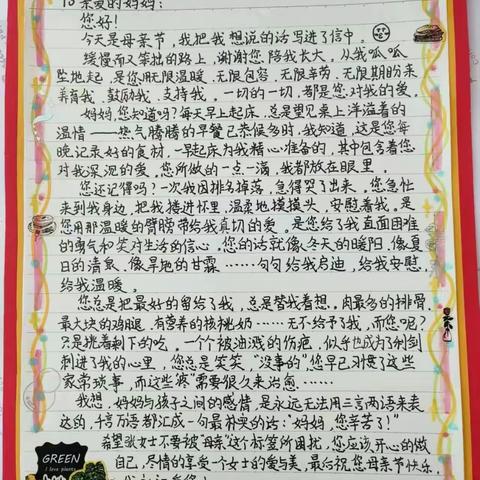 To亲爱的妈妈：
您好！
今天是母亲节，我把我想说的话写进了信中。
缓慢而又笨拙的路上，谢谢您陪我长大，从我呱呱
坠地起，是您用无限温暖、无限包容、无限辛劳、无限期盼来
养育我、鼓励我、支持我。一切的一切，都是您对我的爱。
妈妈，您知道吗？每天早上起床，总是望见桌上洋溢着的
温情——热气腾腾的早餐已恭候多时，我知道，这是您每
晚记录好的食材，一早起床为我精心准备的，其中包含着您
对我深沉的爱，您所做的一点一滴，我都放在眼里。
您还记得吗？一次我因排名掉落，急得哭了出来，您急忙
来到我身边，把我搂进怀里，温柔地摸摸头，安慰着我。是
您用那温暖的臂膀带给我真切的爱。是您给了我直面困难
的勇气和笑对生活的信心。您的话就像冬天的暖阳，像夏
日的清泉，像旱地的甘霖……句句给我启迪，给我安慰，
给我温暖。
您总是把最好的留给了我，总是替我着想，肉最多的排骨，
最大块的鸡腿，有营养的核桃奶……无不给予了我，而您呢？
只是挑着剩下的吃。一个个被油溅的伤疤，似乎也成为了利剑
刺进了我的心里，您总是笑笑，"没事的"您早已习惯了这些
家常琐事，而这些"疼"需要很久来治愈……
我想，妈妈与孩子之间的感情，是永远无法用三言两语来表
达的，千言万语都汇成一句最朴实的话："妈妈，您辛苦了！"
希望张女士不要被"母亲"这个标签所困扰，您应该开心的做
自己，尽情的享受一个女士的爱与美，最后祝您母亲节快乐，
GREEN
I love plants